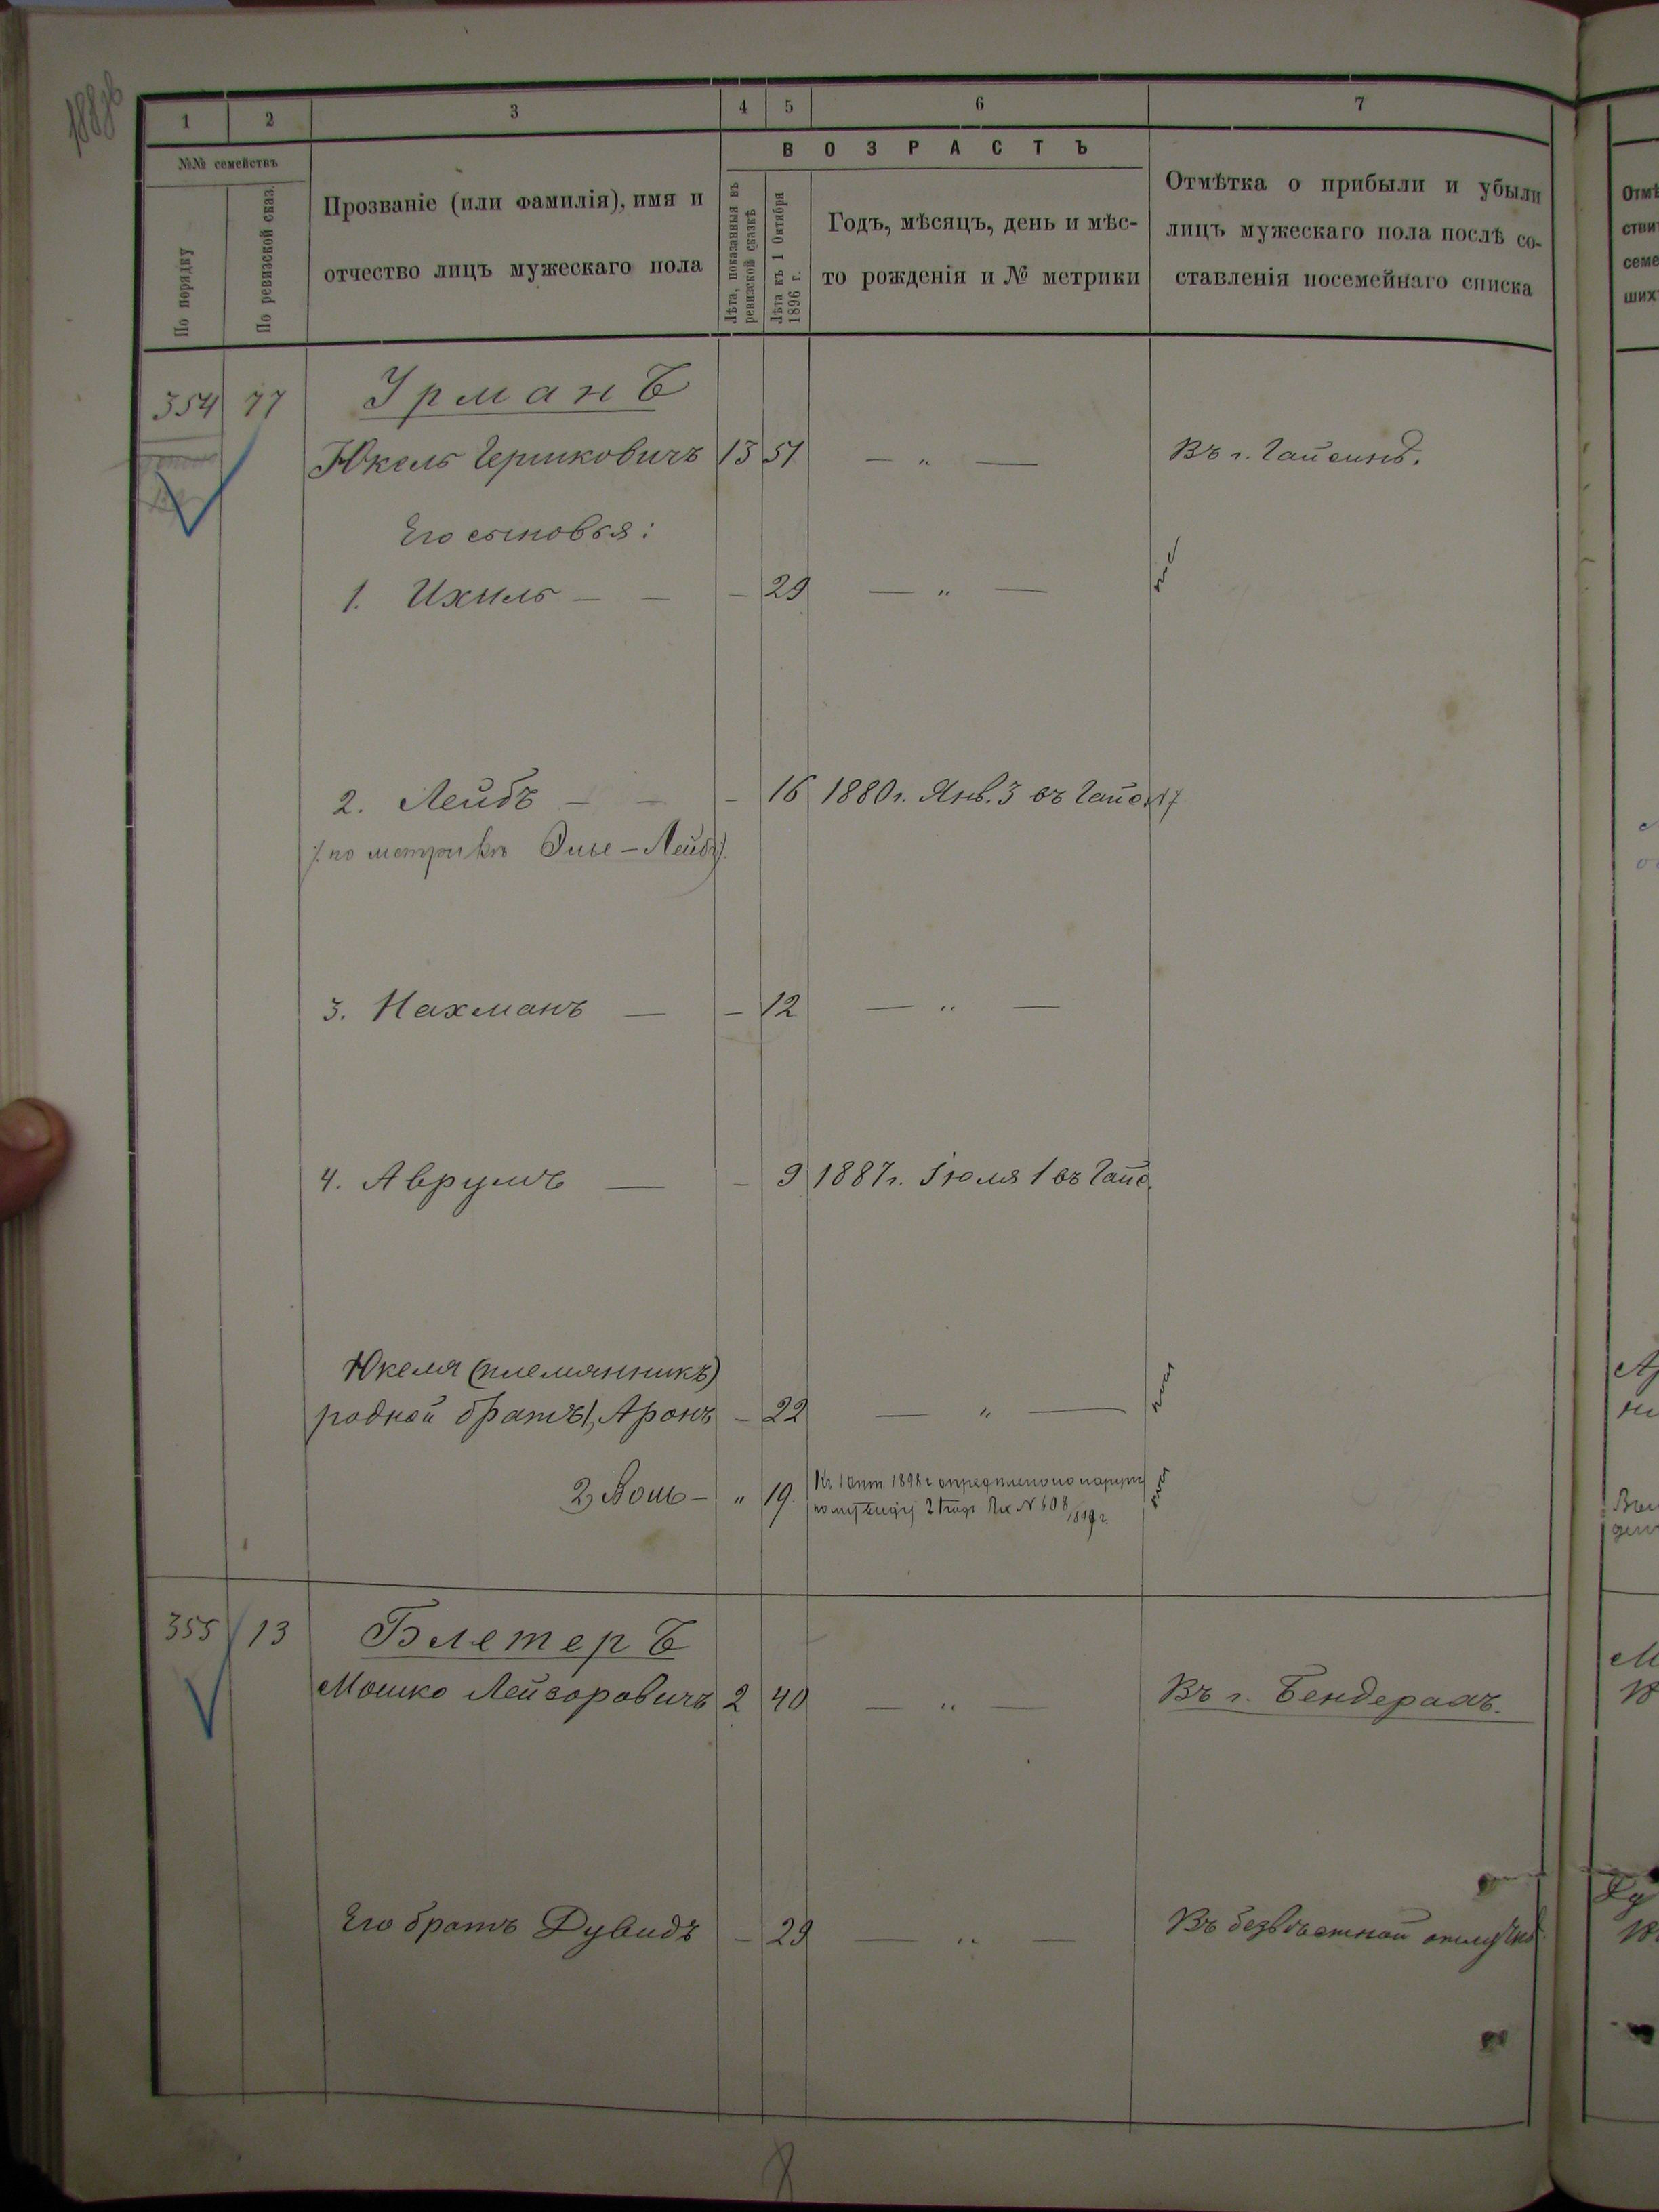 1 2 3 4 5 6 7
№№ семействъ
По порядку
По ревизской сказ.
Прозваніе (или фамилія), имя и
отчество лицъ мужескаго пола
ВОЗРАСТЪ
Лѣта, показанныя въ
ревизской сказкѣ
Лѣта къ 1 Октября
1896 г.
Годъ, мѣсяцъ, день и мѣс-
то рожденія и № метрики
Отмѣтка о прибыли и убыли
лицъ мужескаго пола послѣ со-
ставленія посемейнаго списка
354 77 Урманъ
Юкель Гершковичъ 13 51 — „ — Въ г. Гайсинѣ.
Его сыновья:
1. Ихиль — — — 29 — „ —
2. Лейбъ — — — 16 1880 г. Янв. 3 въ Гайс. 17
(по метрикѣ Элье-Лейбъ).
3. Нахманъ — — 12 — „ —
4. Аврумъ — — 9 1887 г. Іюля 1 въ Гайс.
Юкеля (племянникъ)
родной братъ 1, Аронъ — 22 — „ —
2, Вольъ — „ 19.
№ 608/1898 г.
355 13 Блетеръ
Мошко Лейзоровичъ 2 40 — „ — Въ г. Бендерахъ.
Его братъ Дувидъ — 29 — „ — Въ безвѣстной отлучкѣ